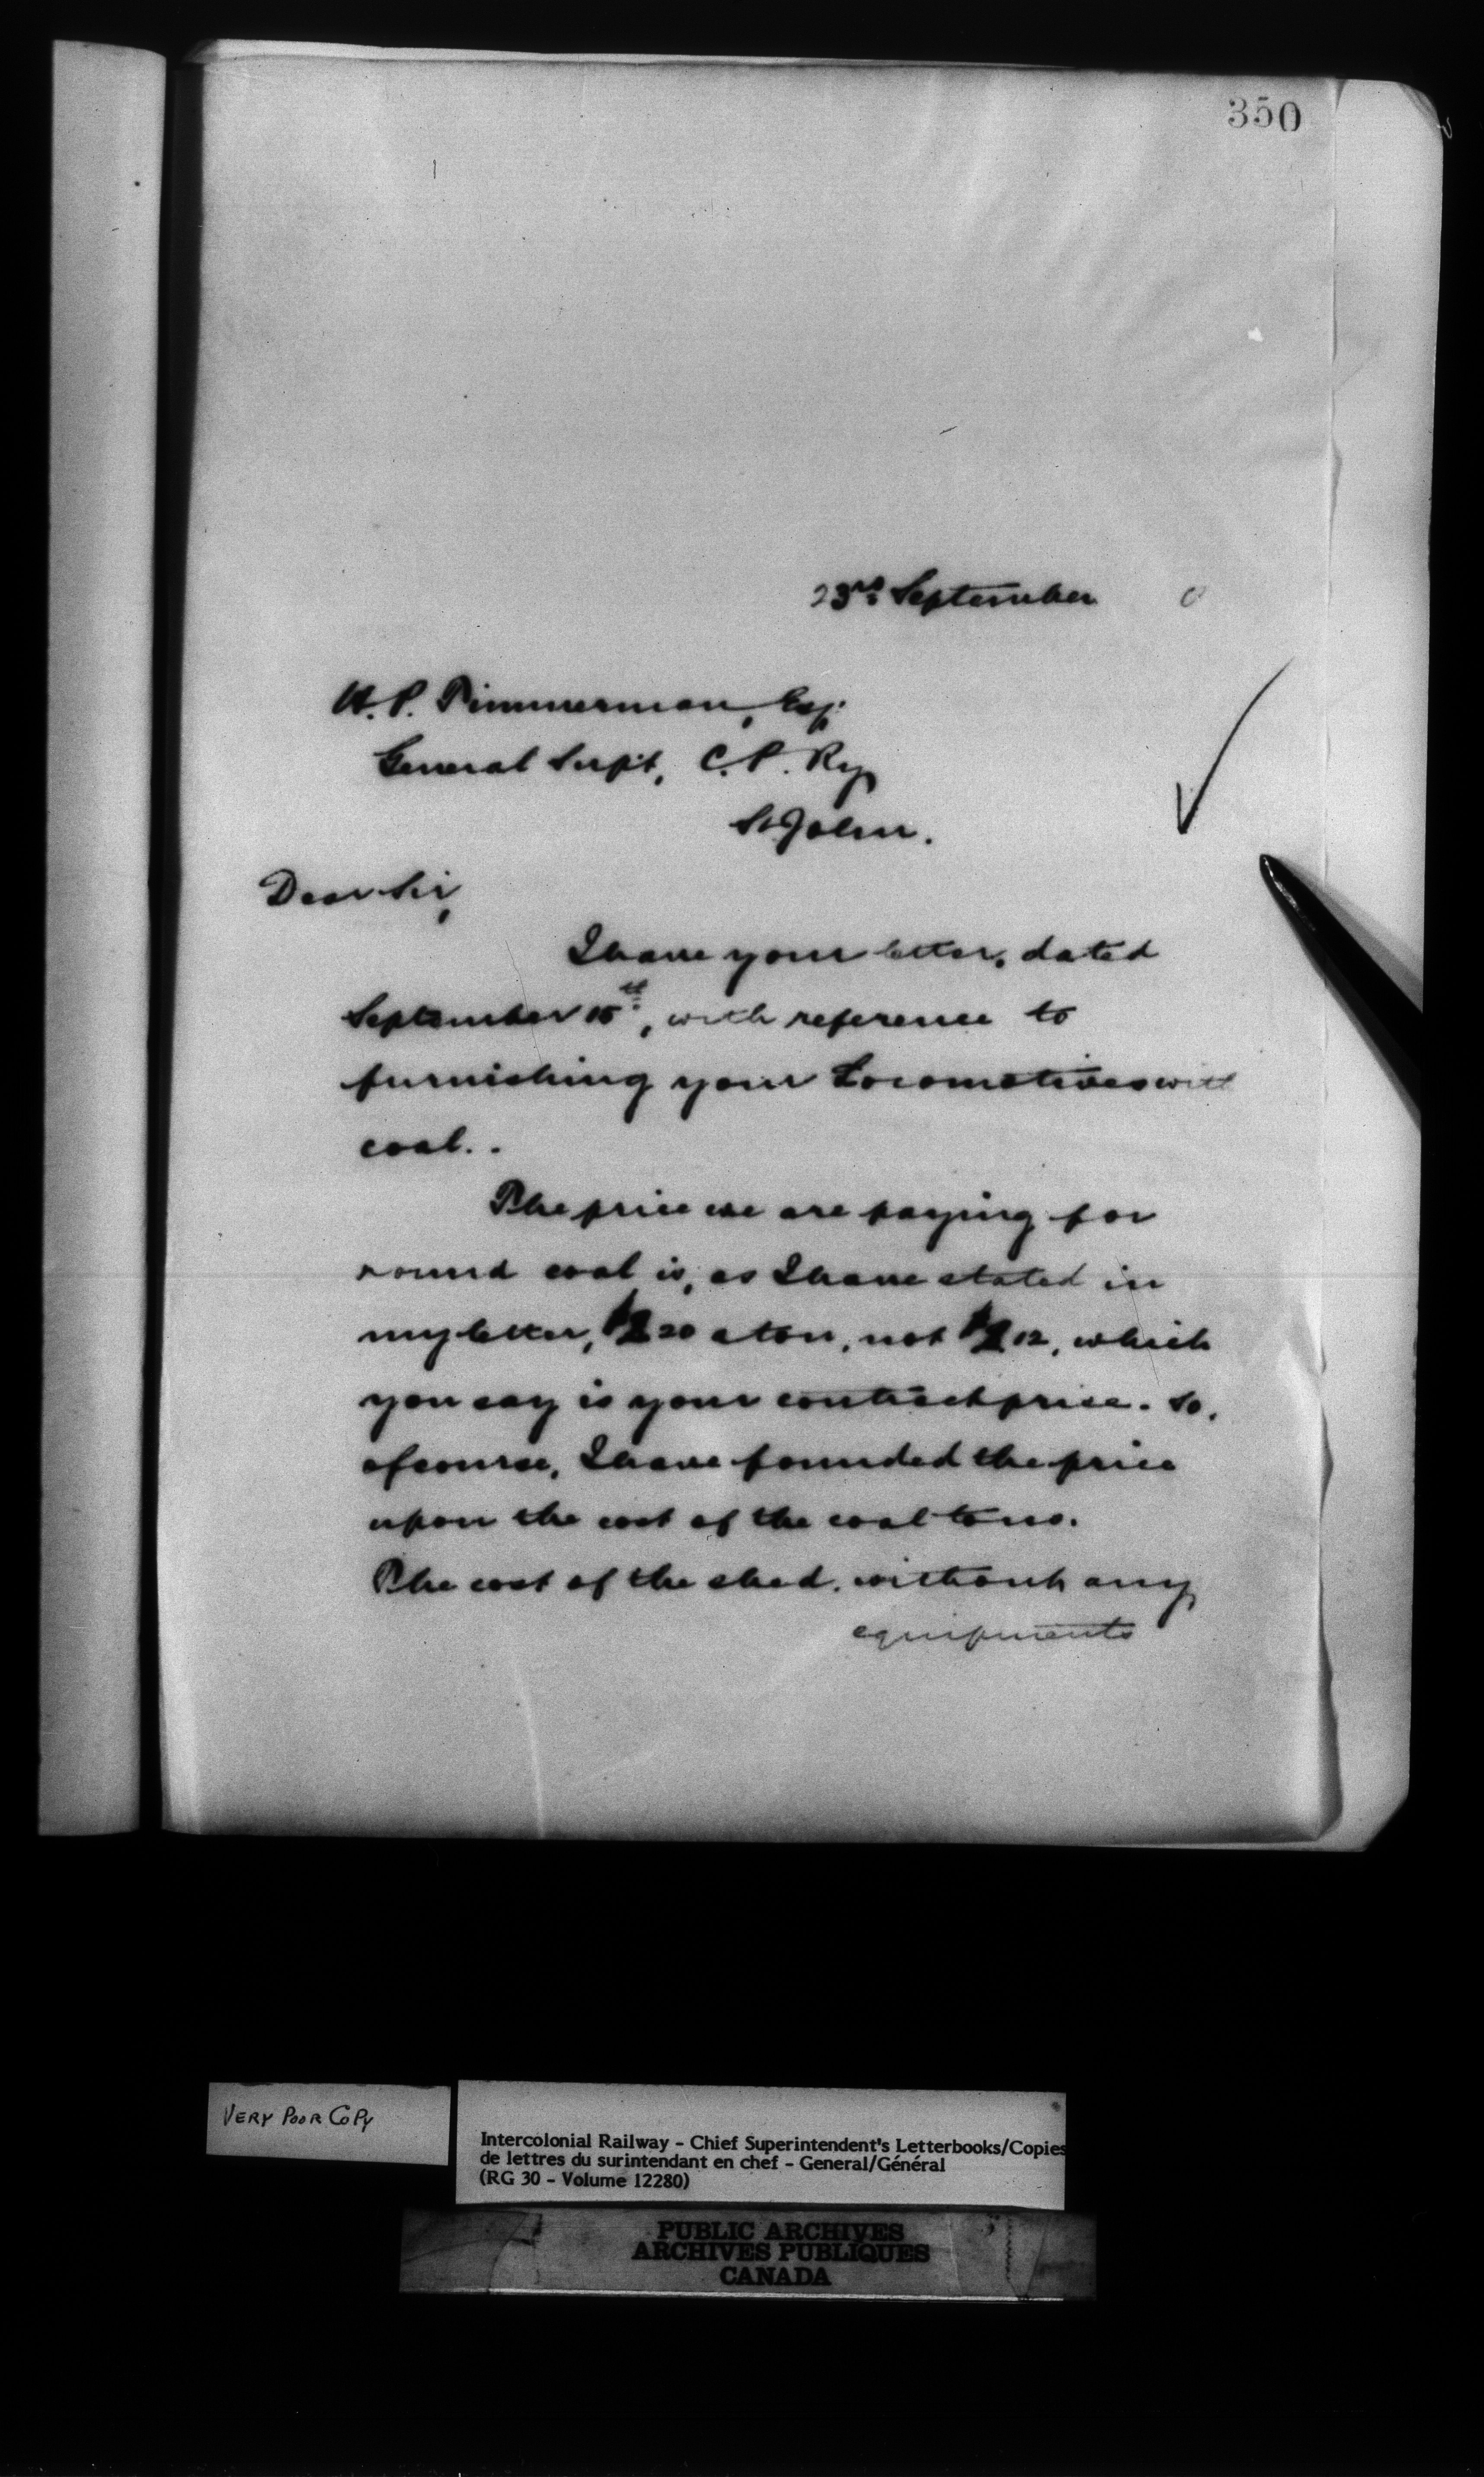 350
23rd September 0
H. P. Timmerman, Esq:
General Supt, C. P. Ry
St John.
Dear Sir,
I have your letter, dated
September 15th, with reference to
furnishing your Locomotives with
coal.
The price we are paying for
round coal is, as I have stated in
my letter, $2 20 a ton, not $2 12, which
you say is your contract price. So,
of course, I have founded the price
upon the cost of the coal to us.
The cost of the shed, without any
equipments
VERY POOR COPY
Intercolonial Railway - Chief Superintendent's Letterbooks/Copies
de lettres du surintendant en chef - General/Général
(RG 30 - Volume 12280)
PUBLIC ARCHIVES
ARCHIVES PUBLIQUES
CANADA